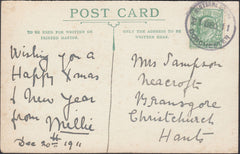 POST CARD
TO BE USED FOR WRITTEN OR PRINTED MATTER.
THE ADDRESS ONLY TO BE WRITTEN HERE.
Wishing you a
Happy Xmas
& New Year
from Millie
Dec 20th 1911
Mrs Sampson
Neacroft
Bransgore
Christchurch
Hants